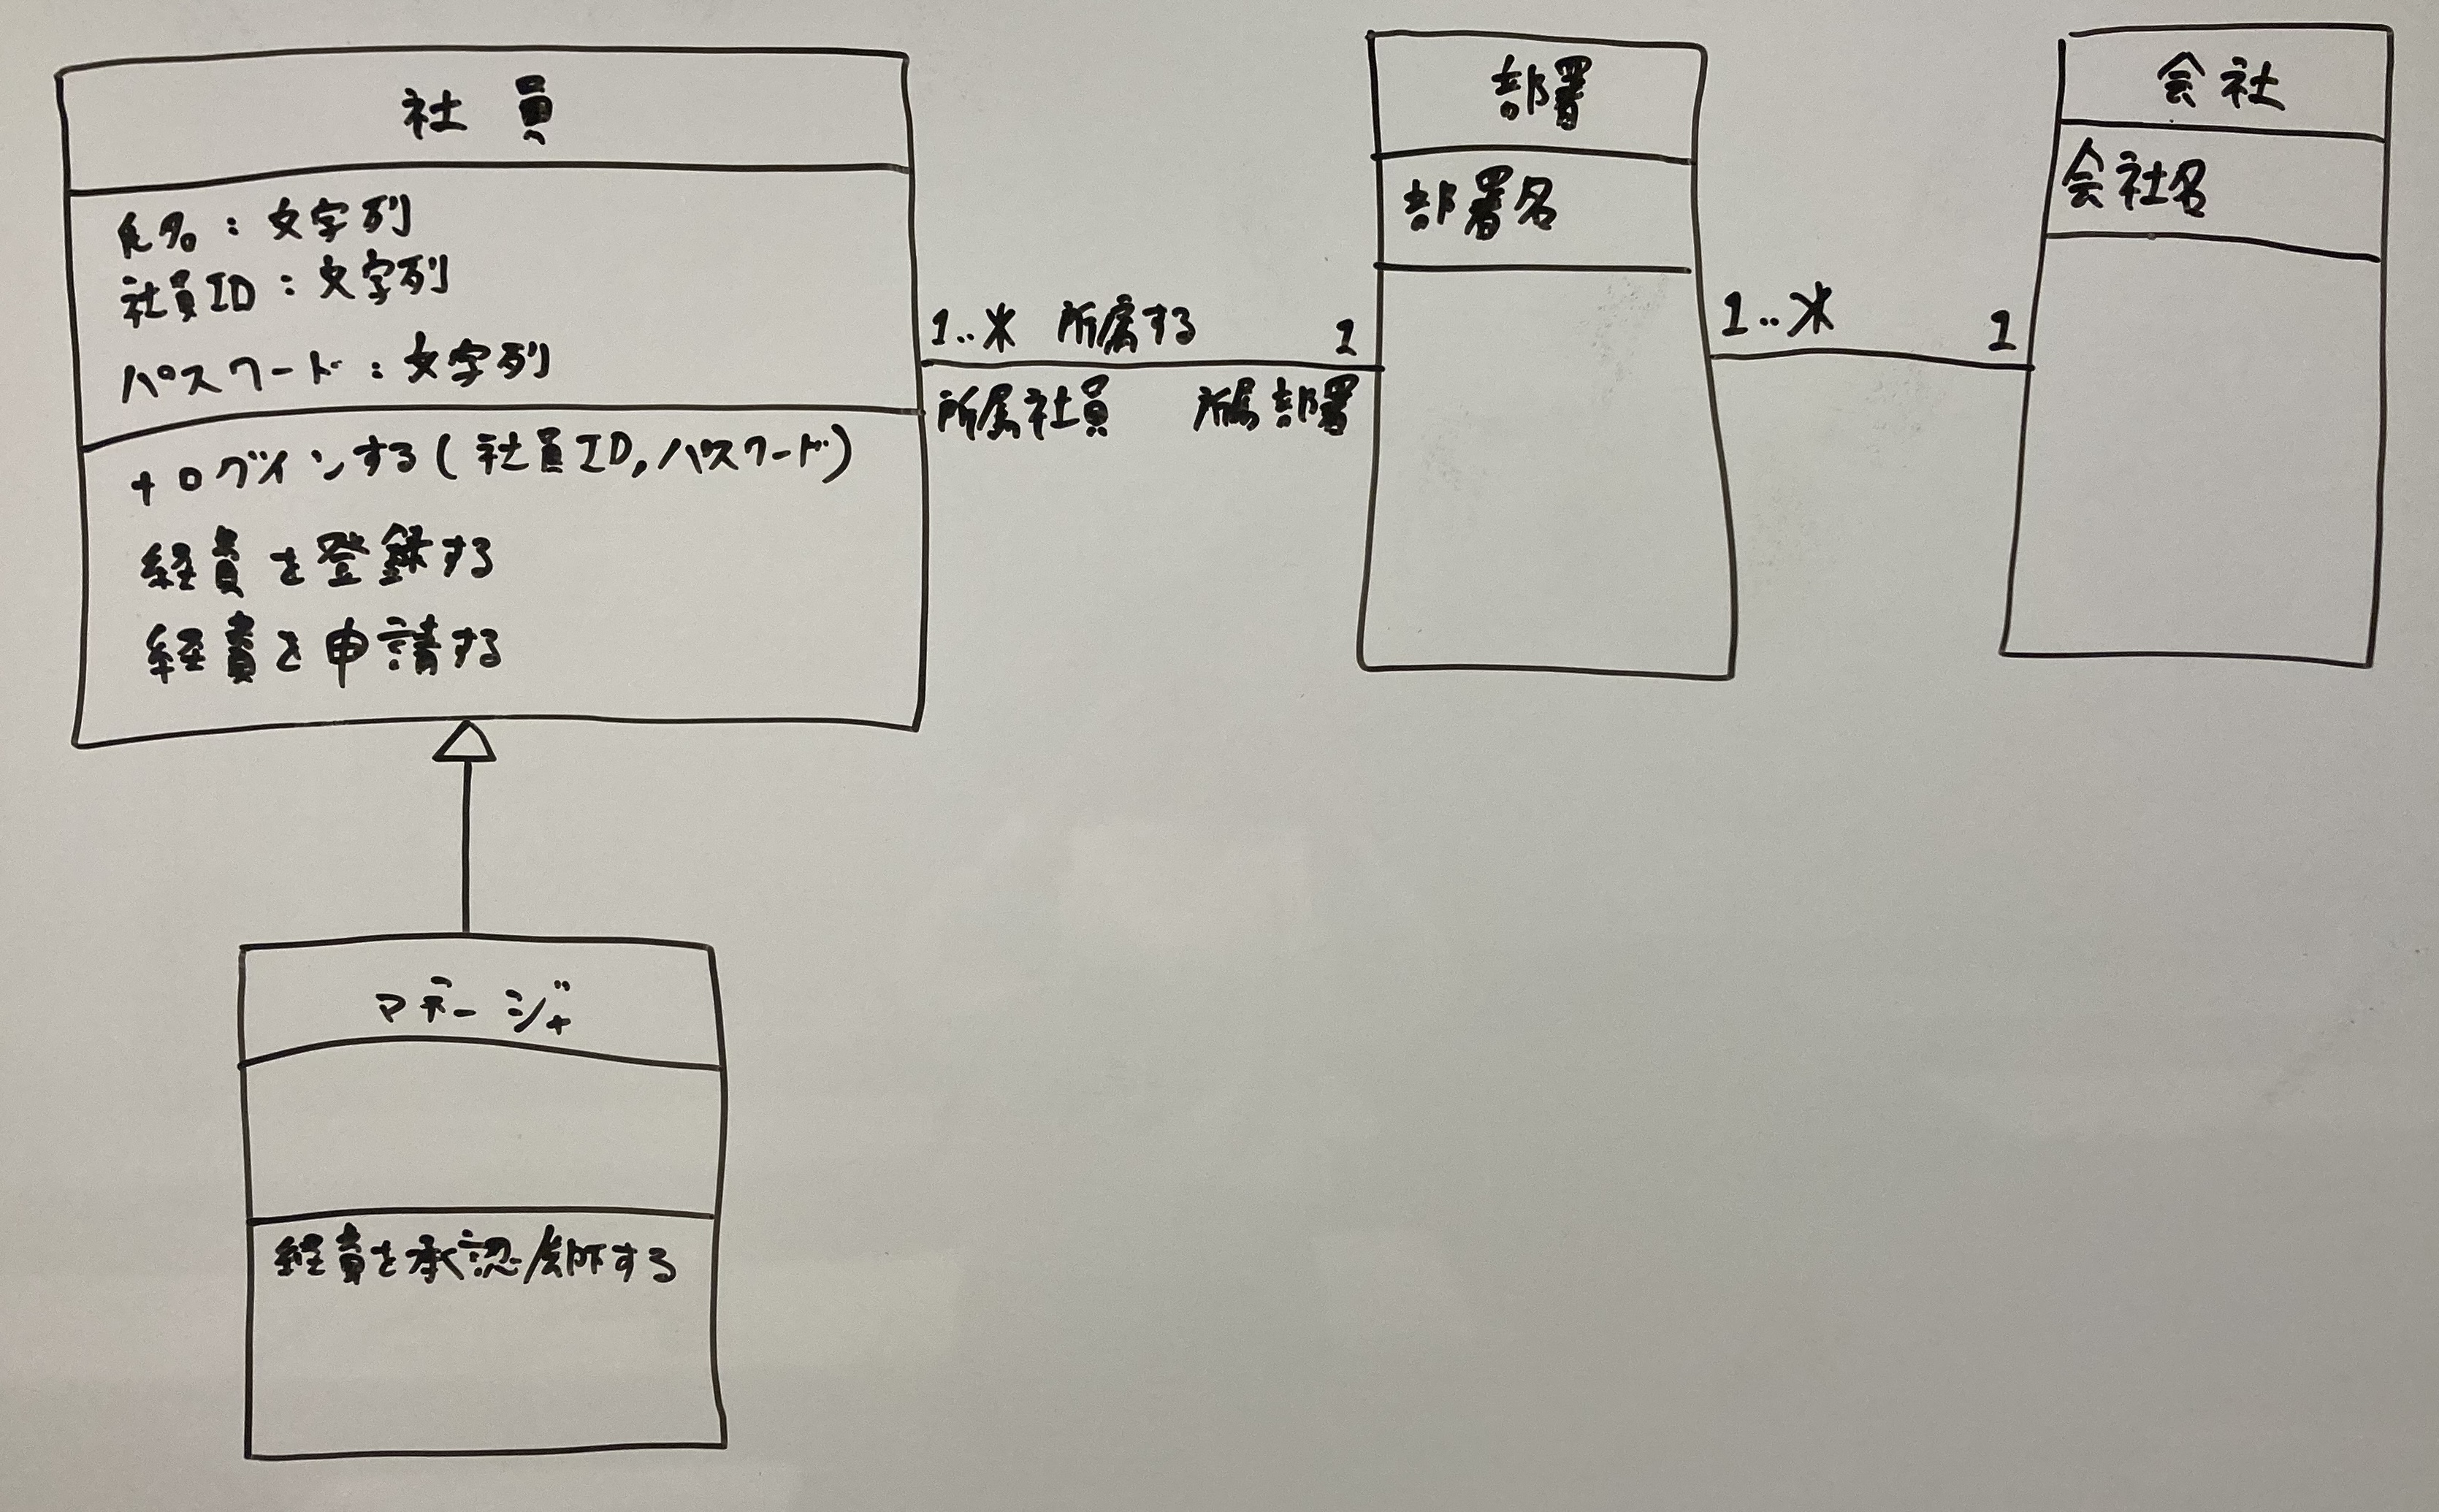 社員
氏名：文字列
社員ID：文字列
パスワード：文字列
+ログインする(社員ID,パスワード)
経費を登録する
経費を申請する
1..* 所属する 1
所属社員 所属部署
部署
部署名
1..* 1
会社
会社名
マネージャ
経費を承認/却下する